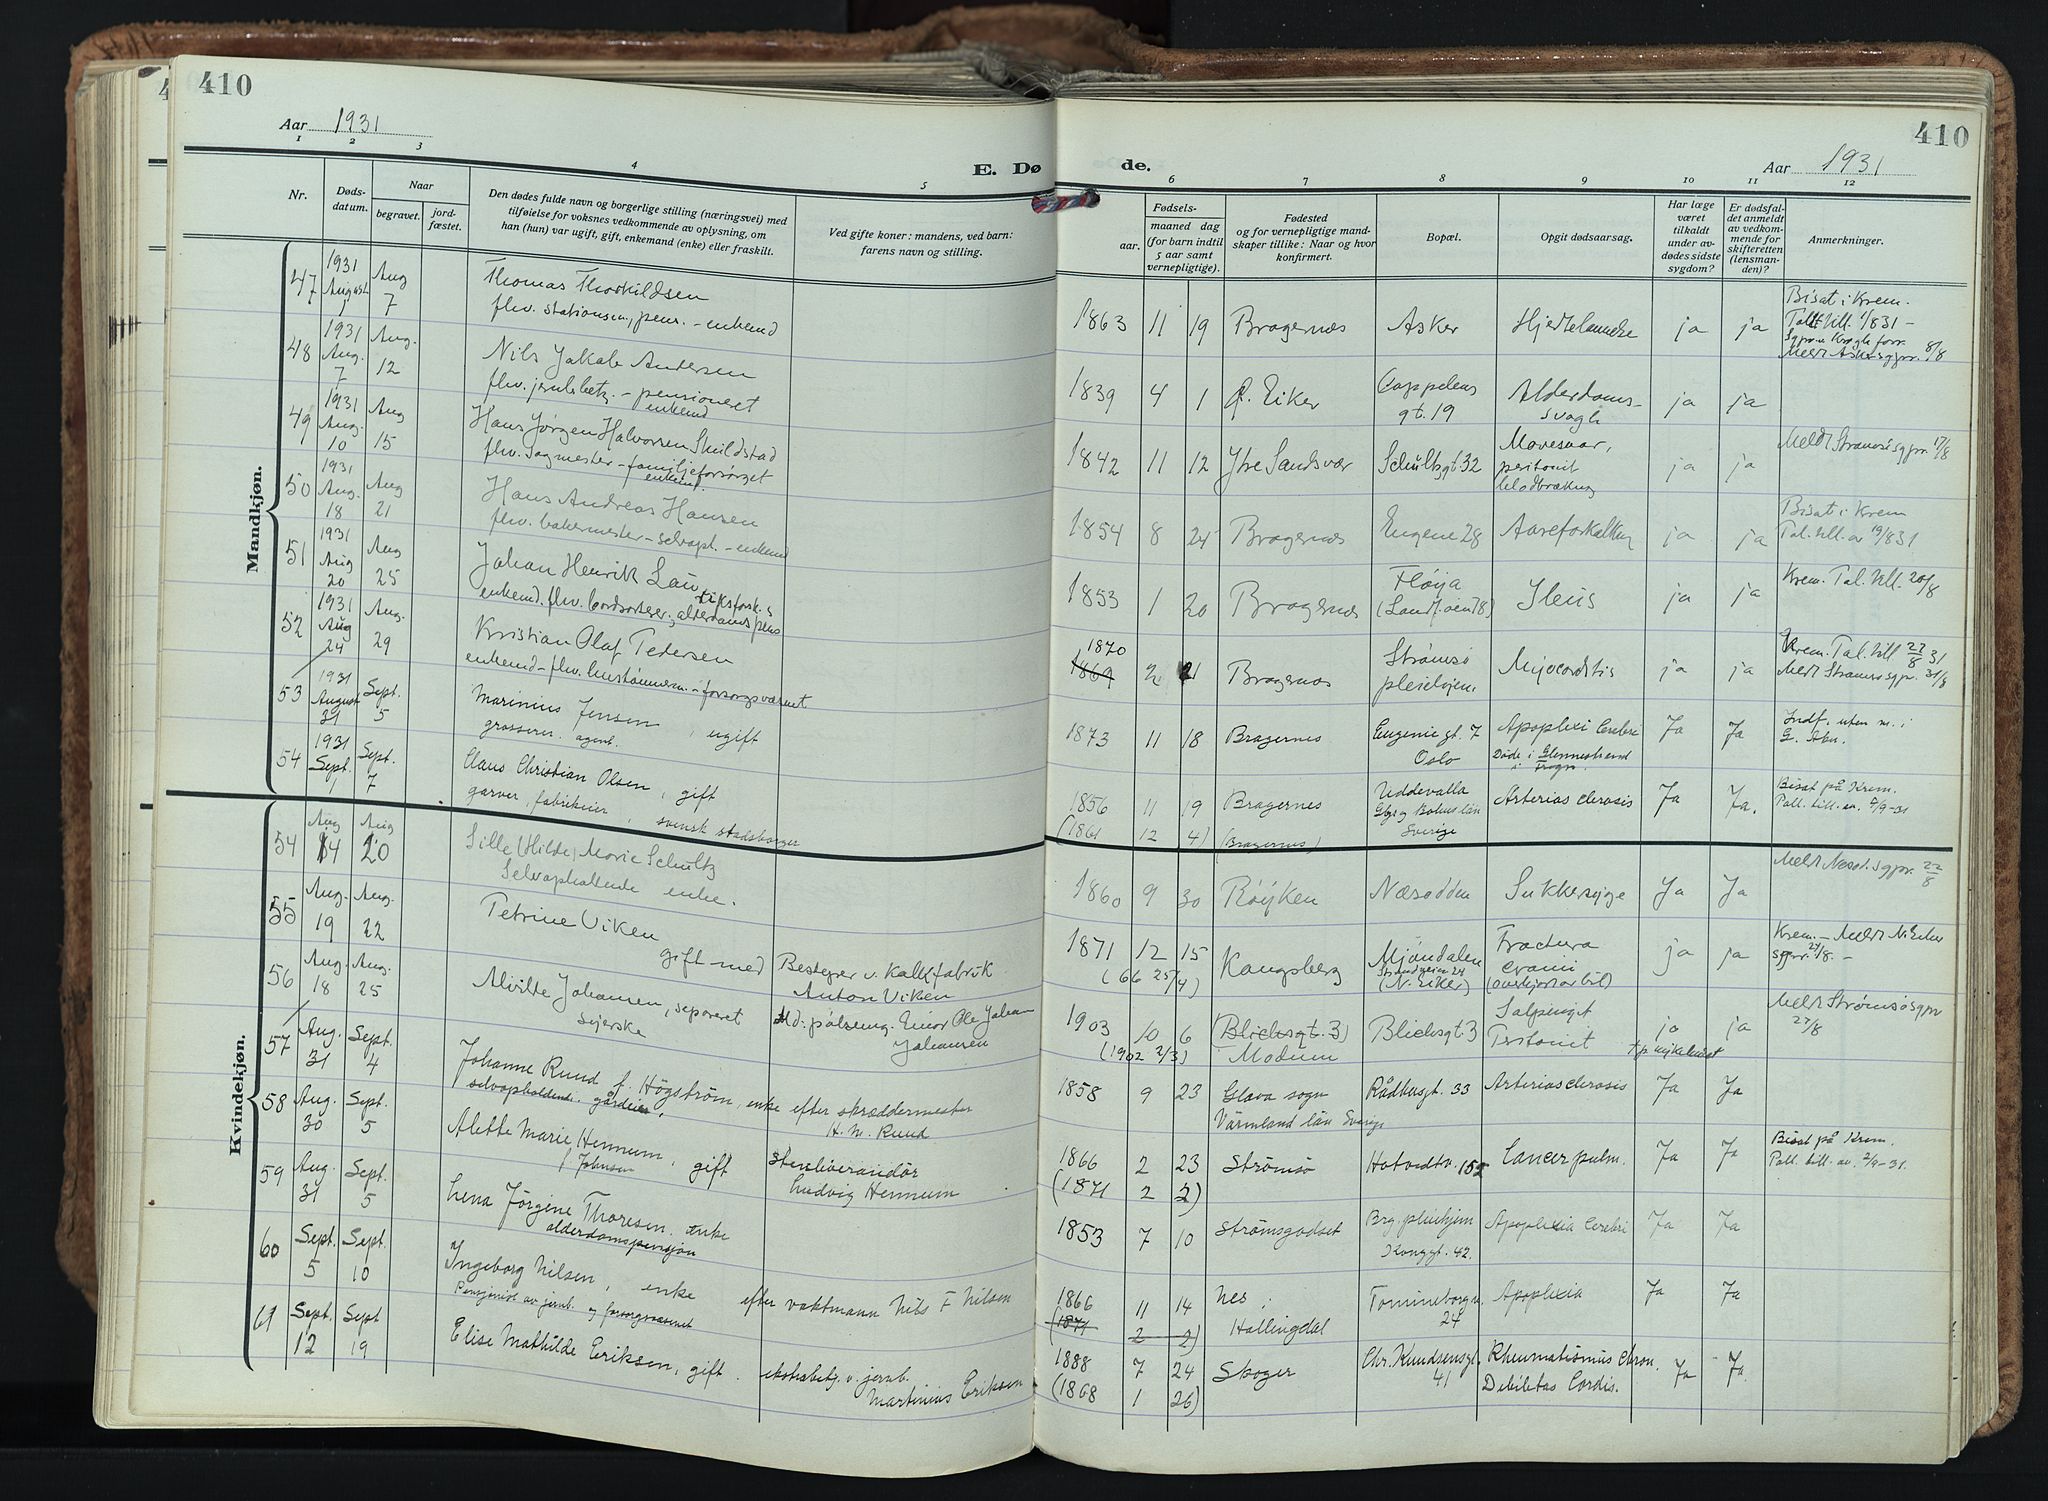 410
Aar 1931
1 2 3 4 5
E. Dø
Nr.
Døds-
datum.
Naar
begravet.
jord-
fæstet.
Den dødes fulde navn og borgerlige stilling (næringsvei) med
tilføielse for voksnes vedkommende av oplysning, om
han (hun) var ugift, gift, enkemand (enke) eller fraskilt.
Ved gifte koner: mandens, ved barn:
farens navn og stilling.
410
de.
Aar 1931
6 7 8 9 10 11 12
Fødsels-
aar.
maaned dag
(for barn indtil
5 aar samt
vernepligtige).
Fødested
og for vernepligtige mand-
skaper tillike: Naar og hvor
konfirmert.
Bopæl.
Opgit dødsaarsag.
Har læge
været
tilkaldt
under av-
dødes sidste
sygdom?
Er dødsfal-
det anmeldt
av vedkom-
mende for
skifteretten
(lensman-
den)?
Anmerkninger.
Mandkjøn.
47 1931 August 1 Aug 7 Thomas Thorkildsen
fhv. stationsm., pens. - enkemd
1863 11 19 Bragernæs Asker Hjertelammelse ja ja Bisat i Krem.
48 1931 Aug. 7 Aug. 12 Nils Jakob Andersen
fhv. jernb.betj. - pensioneret
enkemd
1839 4 1 Ø. Eiker Cappelens
gt. 19
Alderdoms-
svagh
ja ja
49 1931 Aug. 10 Aug 15 Hans Jørgen Halvorsen Skuldstad
fhv. sagmester - familjeforsørget
enkemd
1842 11 12 Ytre Sandsvær Schultzgt 32 Mavesaar,
peritonit
blodbrækng
ja ja Meldt Strømsø sgpr. 17/8
50 1931 Aug. 18 Aug 21 Hans Andreas Hansen
fhv. bakermester - selvoph. - enkemd
1854 8 24 Bragernæs Eugene 28 Aareforkalkng ja ja Bisat i Krem
Tal. till. av 19/8 31
51 1931 Aug 20 Aug 25 Johan Henrik
enkemd. fhv. bordsorterer, alderdoms pens
1853 1 20 Bragernæs Fløya Ileus ja ja Krem. Tal. till. 20/8
52 1931 Aug 24 Aug. 29 Kristian Olaf Pedersen
enkemd - fhv. hustømmerm. - forsorgsvæsnet
1870
1869 2 21 Bragernæs Strømsø
pleiehjem.
Myocarditis ja ja Krem. Tal. till 27/8 31
Meldt Strømsø sgpr. 31/8
53 1931 August 31 Sept. 5 Marinius Jensen, ugift
grosserer. agent.
1873 11 18 Bragernes Eugenie gt. 7
Oslo
Apoplexi Cerebri Ja Ja
54 1931 Sept. 1 Sept. 7 Claus Christian Olsen, gift
garver, fabrikeier, svensk stadsborger
1856 11 19 Bragernes Uddevalla
Gbg og Bohus län
Sverige
Arteriosclerosis Ja Ja. Bisat på Krem.
(1861 12 4) (Bragernes)
Kvindekjøn.
54 Aug 14 Aug 20 Sille (Hilde) Marie Schultz
Selvopholdende enke.
1860 9 30 Røyken Næsodden Sukkersyge Ja Ja Meldt Nesod. sgpr. 22/8
55 Aug. 19 Aug. 22 Petrine Viken
gift med Bestyrer v. kalkfabrik
Anton Viken
1871 12 15 Kongsberg Mjøndalen
Strandveien 24
(N. Eiker)
Fractura
cranii
(overkjørt av bil)
ja ja
(66 25/4)
56 Aug. 18 Aug. 25 Alvilde Johansen, separeret
Syerske
Md: pølsemg. Einar Ole Johan
Johansen
1903 10 6 (Blichsgt. 3) Blichsgt 3 Salpingit
Peritonit
ja ja Meldt Strømsø sgpr
27/8
(1902 2/3) Modum
på sykehuset
57 Aug. 31 Sept. 4 Johanne Ruud f. Högström, enke efter skræddermester
selvopholdende gårdeier, H. M. Ruud
1858 9 23 Glava sogn
Värmland län Sverige
Rådhusgt. 33 Arteriosclerosis Ja Ja
58 Aug. 30 Sept. 5 Alette Marie Hennum, gift stenleverandør
f Johnsen Ludvig Hennum
1866 2 23 Strømsø Hotvedtv. 155 Cancer pulm. Ja Ja Bisat på Krem.
Pall. till. av. 2/9-31.
(1871 2 2)
59 Aug. 31 Sept. 5 Lena Jørgine Thoresen. enke
alderdomspensjon
1853 7 10 Strømsgodset Brg. pleiehjem
Konggt. 42.
Apoplexia Cerebri Ja Ja
60 Sept. 5 Sept. 10 Ingeborg Nilsen, enke efter vaktmann Nils F Nilsen
Pensjonist av jernb. og forsorgsvæsenet
1866 11 14 Nes i
Hallingdal
24
Apoplexia Ja Ja
(1871 2 2)
61 Sept. 12 Sept 19 Elise Mathilde Eriksen, gift. ekstrabetj. v. jernb.
Martinius Eriksen
1888 7 24 Skoger Chr. Knudsensgt.
41
Rheumatismus chron.
Debilitas Cordis.
Ja Ja
(1868 1 26)